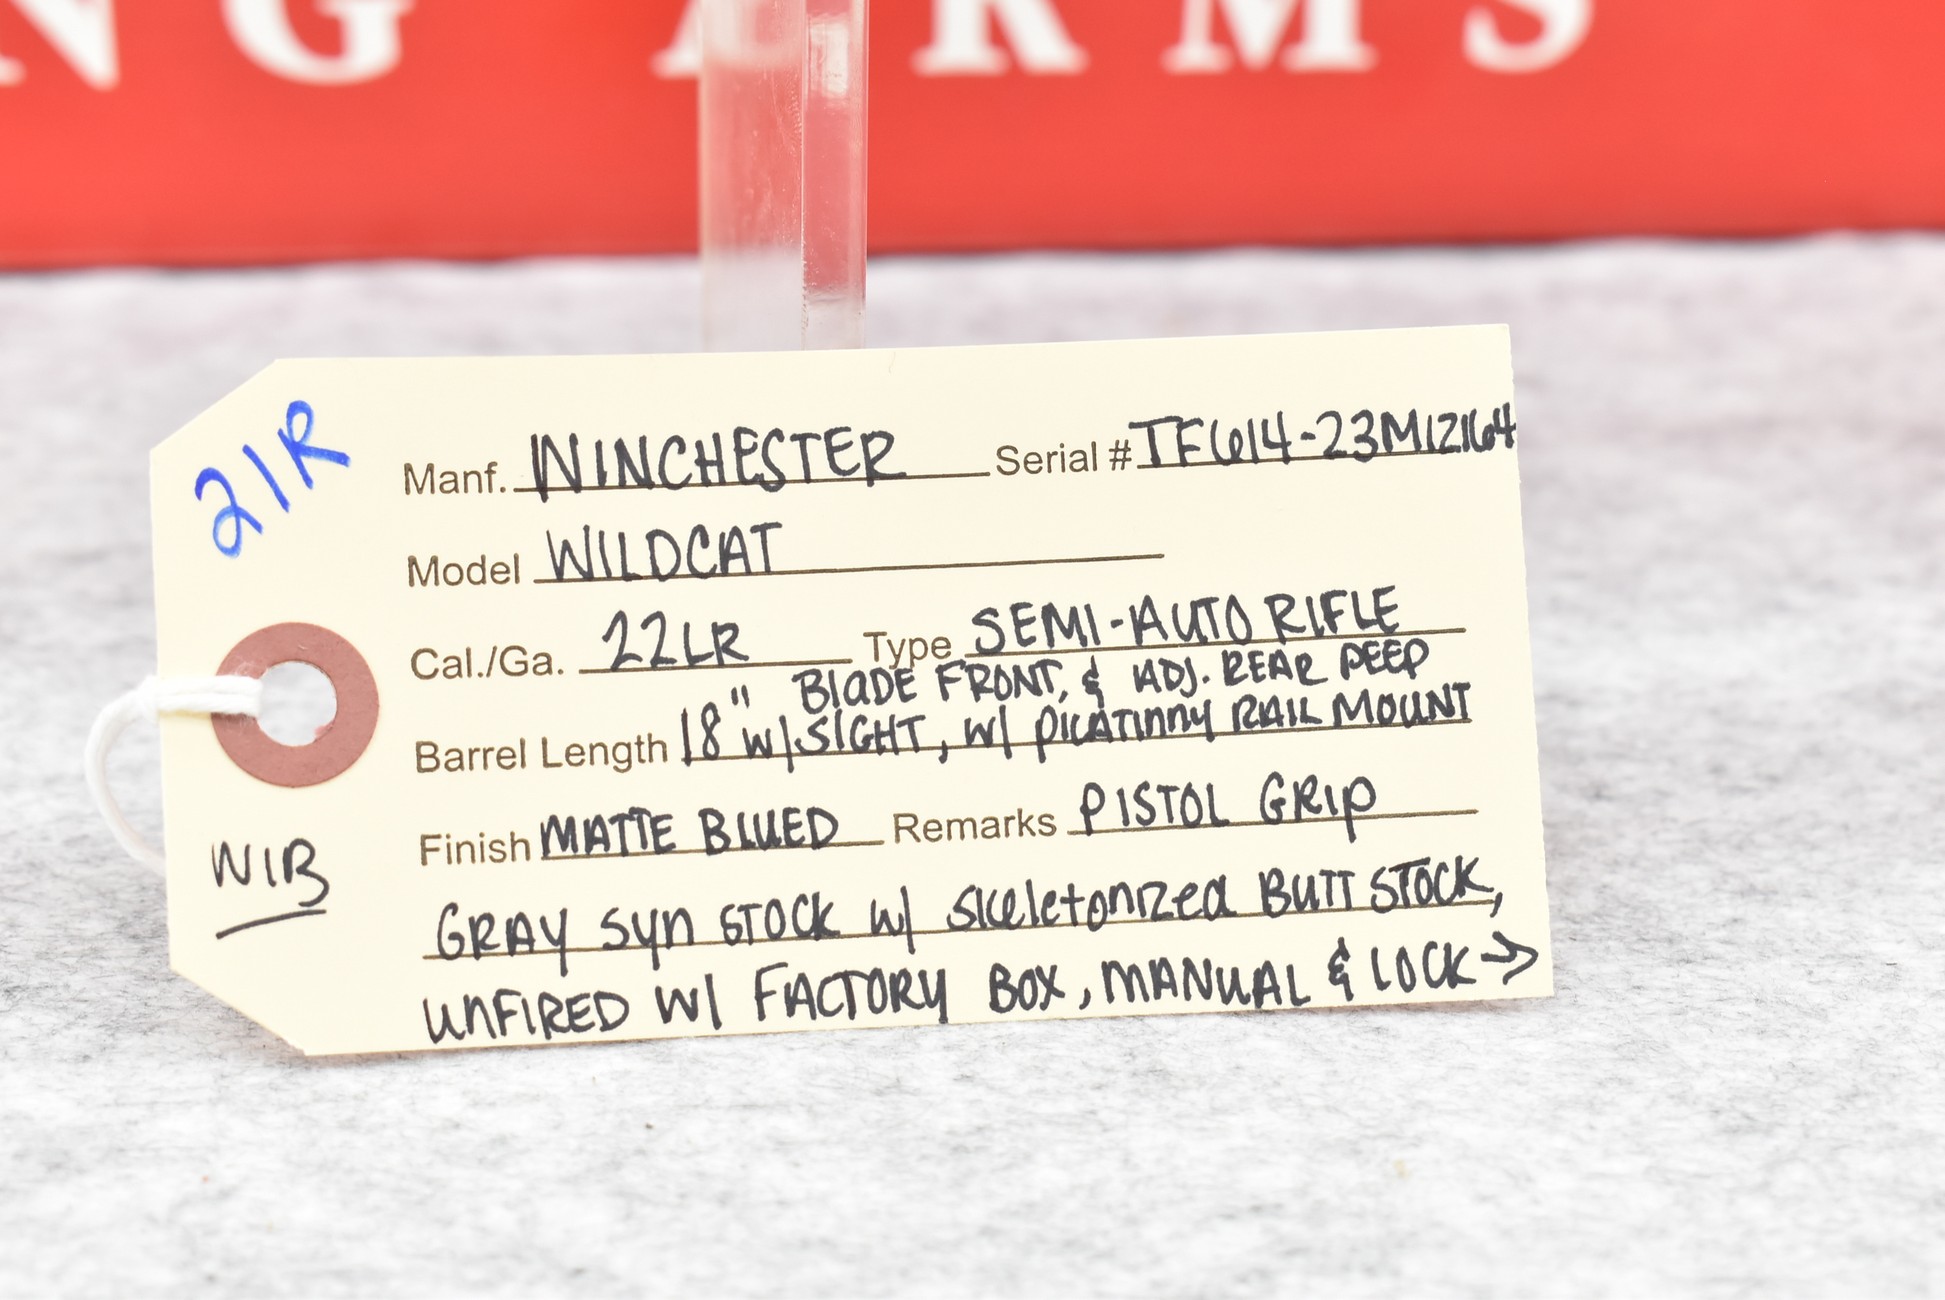 NG ARMS
21R
Manf. WINCHESTER Serial # TF614-23M12164
Model WILDCAT
Cal./Ga. 22LR Type SEMI-AUTO RIFLE
BLADE FRONT, & ADJ. REAR PEEP
Barrel Length 18" W/ SIGHT, W/ PICATINNY RAIL MOUNT
Finish MATTE BLUED Remarks PISTOL GRIP
NIB
GRAY SYN STOCK W/ SKELETONIZED BUTT STOCK,
UNFIRED W/ FACTORY BOX, MANUAL & LOCK →